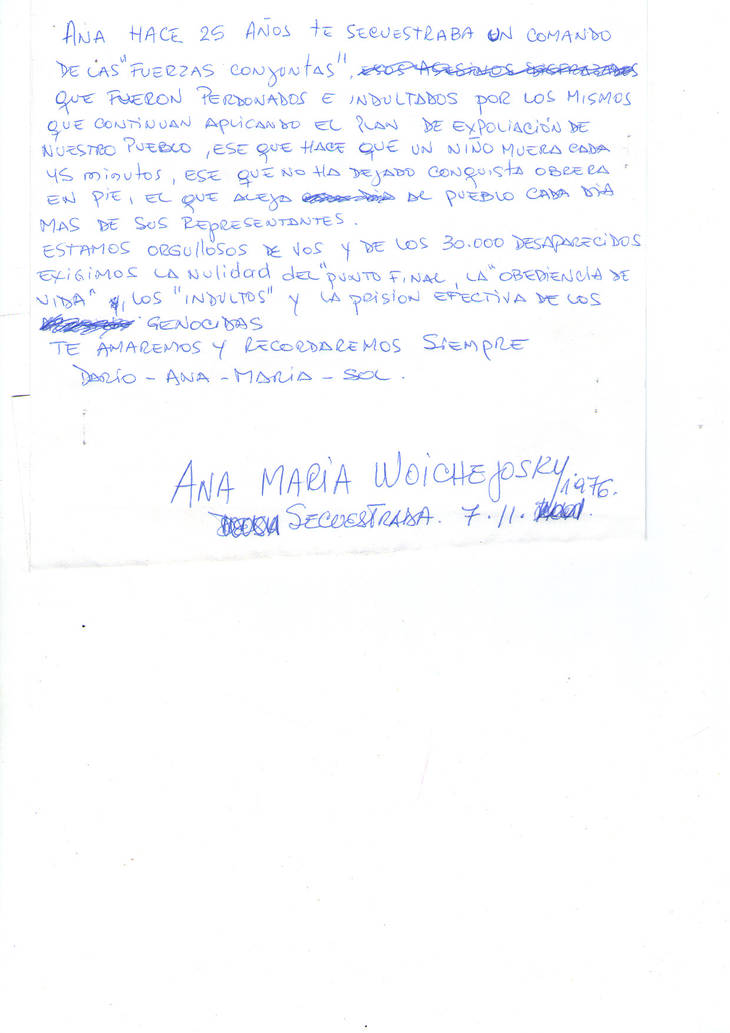 ANA HACE 25 AÑOS TE SECUESTRABA UN COMANDO
DE LAS "FUERZAS CONJUNTAS", ESOS ASESINOS DISFRAZADOS
QUE FUERON PERDONADOS E INDULTADOS POR LOS MISMOS
QUE CONTINUAN APLICANDO EL PLAN DE EXPOLIACIÓN DE
NUESTRO PUEBLO, ESE QUE HACE QUE UN NIÑO MUERA CADA
45 minutos, ESE QUE NO HA DEJADO CONQUISTA OBRERA
EN PIE, EL QUE ALEJA AL PUEBLO CADA DÍA
MAS DE SUS REPRESENTANTES.
ESTAMOS ORGULLOSOS DE VOS Y DE LOS 30.000 DESAPARECIDOS
EXIGIMOS LA NULIDAD DEL "PUNTO FINAL, LA "OBEDIENCIA DE
VIDA", LOS "INDULTOS" Y LA PRISION EFECTIVA DE LOS
GENOCIDAS
TE AMAREMOS Y RECORDAREMOS SIEMPRE
DARÍO - ANA - MARÍA - SOL.
ANA MARÍA WOICHEJOSKY
SECUESTRADA. 7.11. 1976.